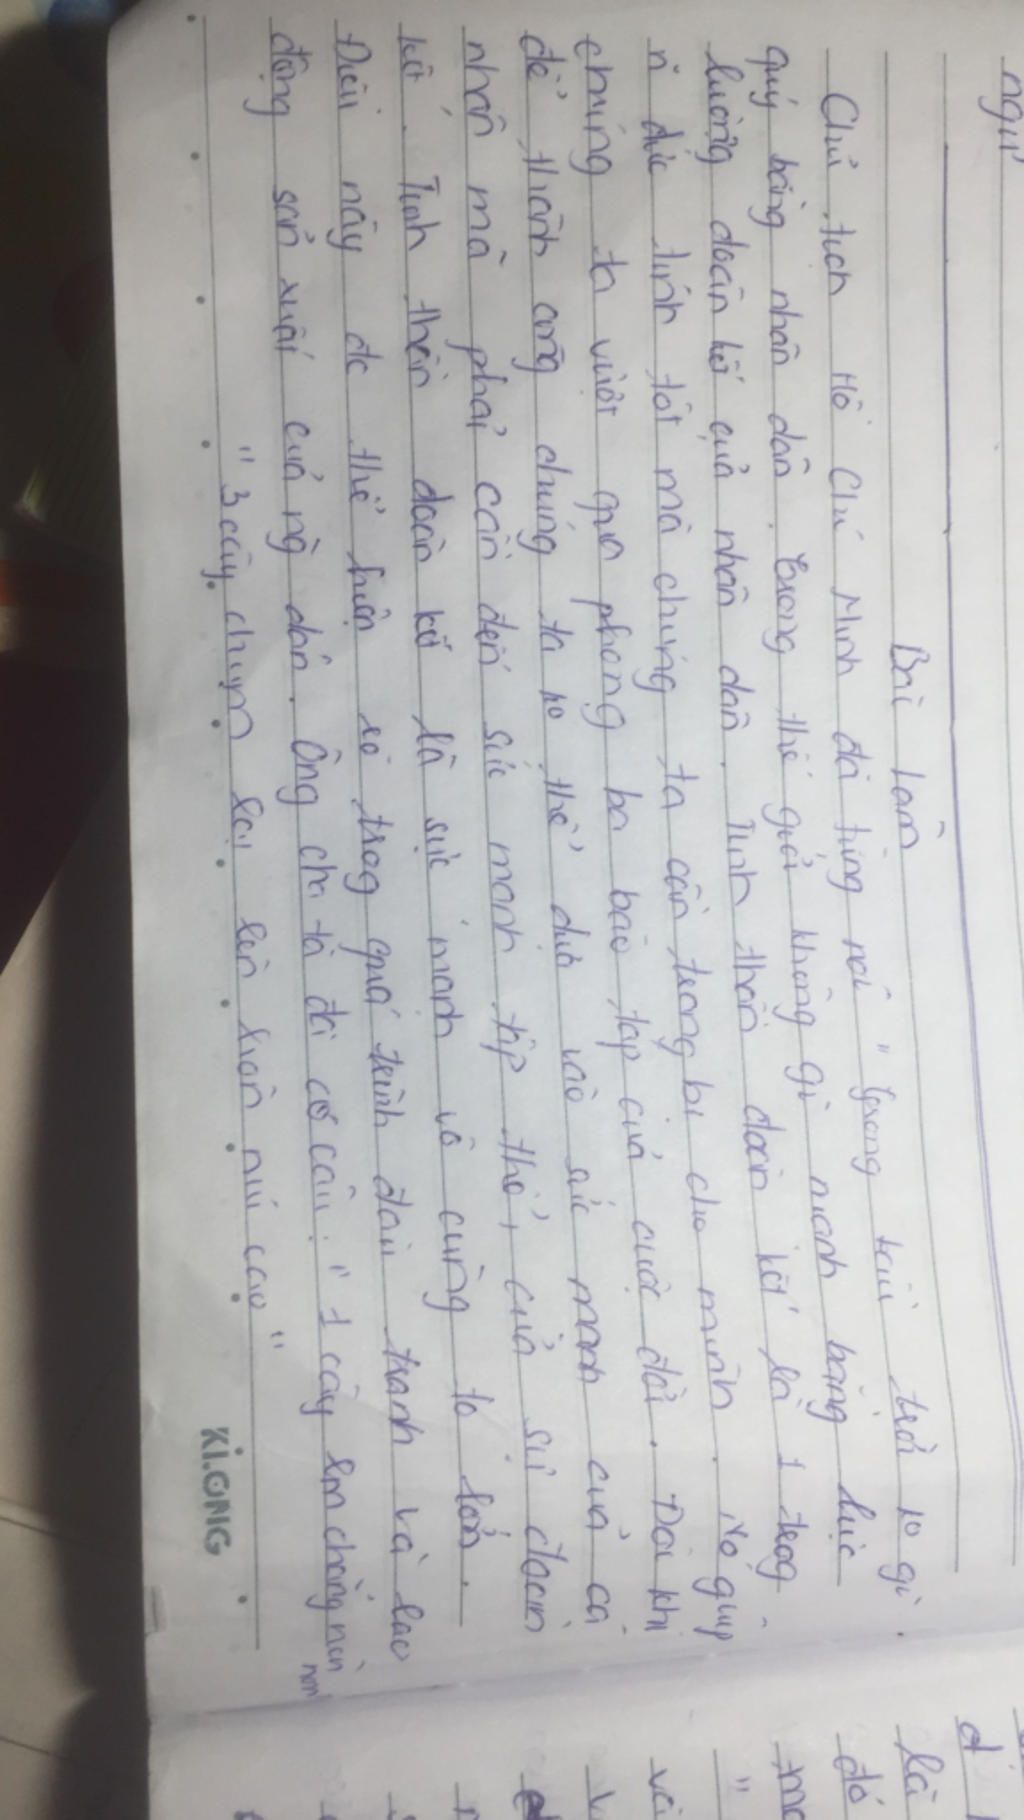 ngư
Bài làm
Chủ tịch Hồ Chí Minh đã từng nói " trong bầu trời ko gì
quý bằng nhân dân. Trong thế giới không gì mạnh bằng lực
lượng đoàn kết của nhân dân. Tinh thần đoàn kết là 1 trog
n đức tính tốt mà chúng ta cần trang bị cho mình. Nó giúp
chúng ta vượt qua phong ba bão táp của cuộc đời. Đôi khi
để thành công chúng ta ko thể dựa vào sức mạnh của cá
nhân mà phải cần đến sức mạnh tập thể, của sự đoàn
kết. Tinh thần đoàn kết là sức mạnh vô cùng to lớn.
Điều này đc thể hiện rõ trog quá trình đấu tranh và lao
động sản xuất của ng dân. Ông cha ta đã có câu: " 1 cây lm chẳng nên
non
" 3 cây chụm lại lên hòn núi cao "
KI.ONG
d
là
đó
mo
"
và